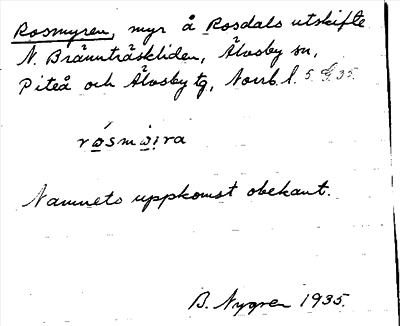 Rosmyren, myr å Rosdals utskifte
N. Brännträskliden, Älvsby sn,
Piteå och Älvsby tg, Norrb. l. 5 G 35.
rósmöira
Namnets uppkomst obekant.
B. Nygren 1935.